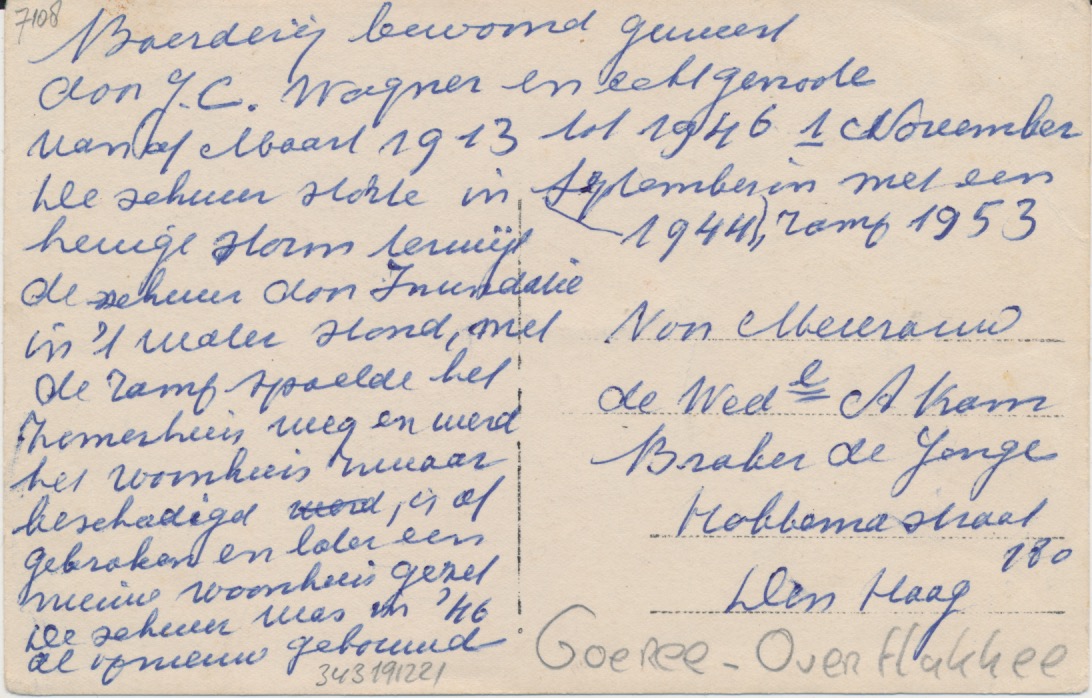 7108
Boerderij bewoond geweest
door J.C. Wagner en echtgenoote
vanaf Maart 1913 tot 1946 1 November
De schuur störte in September in met een
hevige storm terwijl 1944), ramp 1953
de schuur door Inundatie
in 't water stond, met
de ramp spoelde het
zomerhuis weg en werd
het woonhuis zwaar
beschadigd werd, is af
gebroken en later een
nieuw woonhuis gezet
De schuur was in '46
al opnieuw gebouwd
Van Mevrouw
de Wed e A Kam
Braber de Jonge
Hobbemastraat
180
Den Haag
Goeree - Overflakkee
343191221